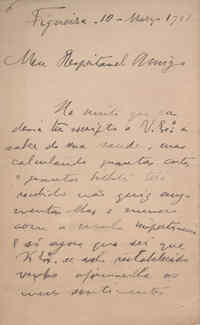 Figueira, 10 - Março 19
Meu Respeitavel Amigo
Ha muito que ja
devia ter escripto a V. Exª a
saber da sua saude, mas
calculando quantas cartas
e quantos bilhetes terá
recebido não quiz aug-
mentar-lhas o numero
com a minha
e só agora que sei que
V. Exª se acha restabelecido
venho apresentar os
meus sentimentos